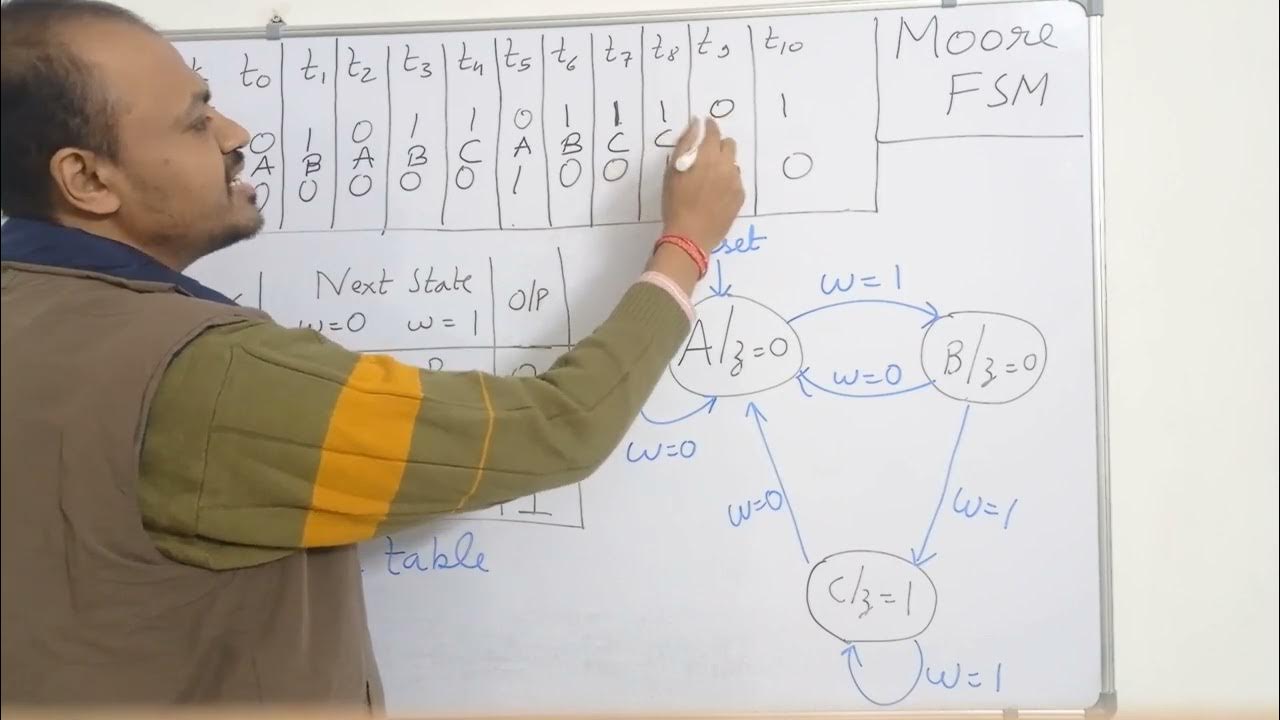 t₀ t₁ t₂ t₃ t₄ t₅ t₆ t₇ t₈ t₉ t₁₀
0 1 0 1 1 0 1 1 1 0 1
A B A B C A B C C
0 0 0 0 0 1 0 0 1 0
Moore
FSM
set
Next State O/P
w=0 w=1
B 0
1
table
A/z=0
B/z=0
C/z=1
w=1
w=0
w=0
w=0
w=1
w=1